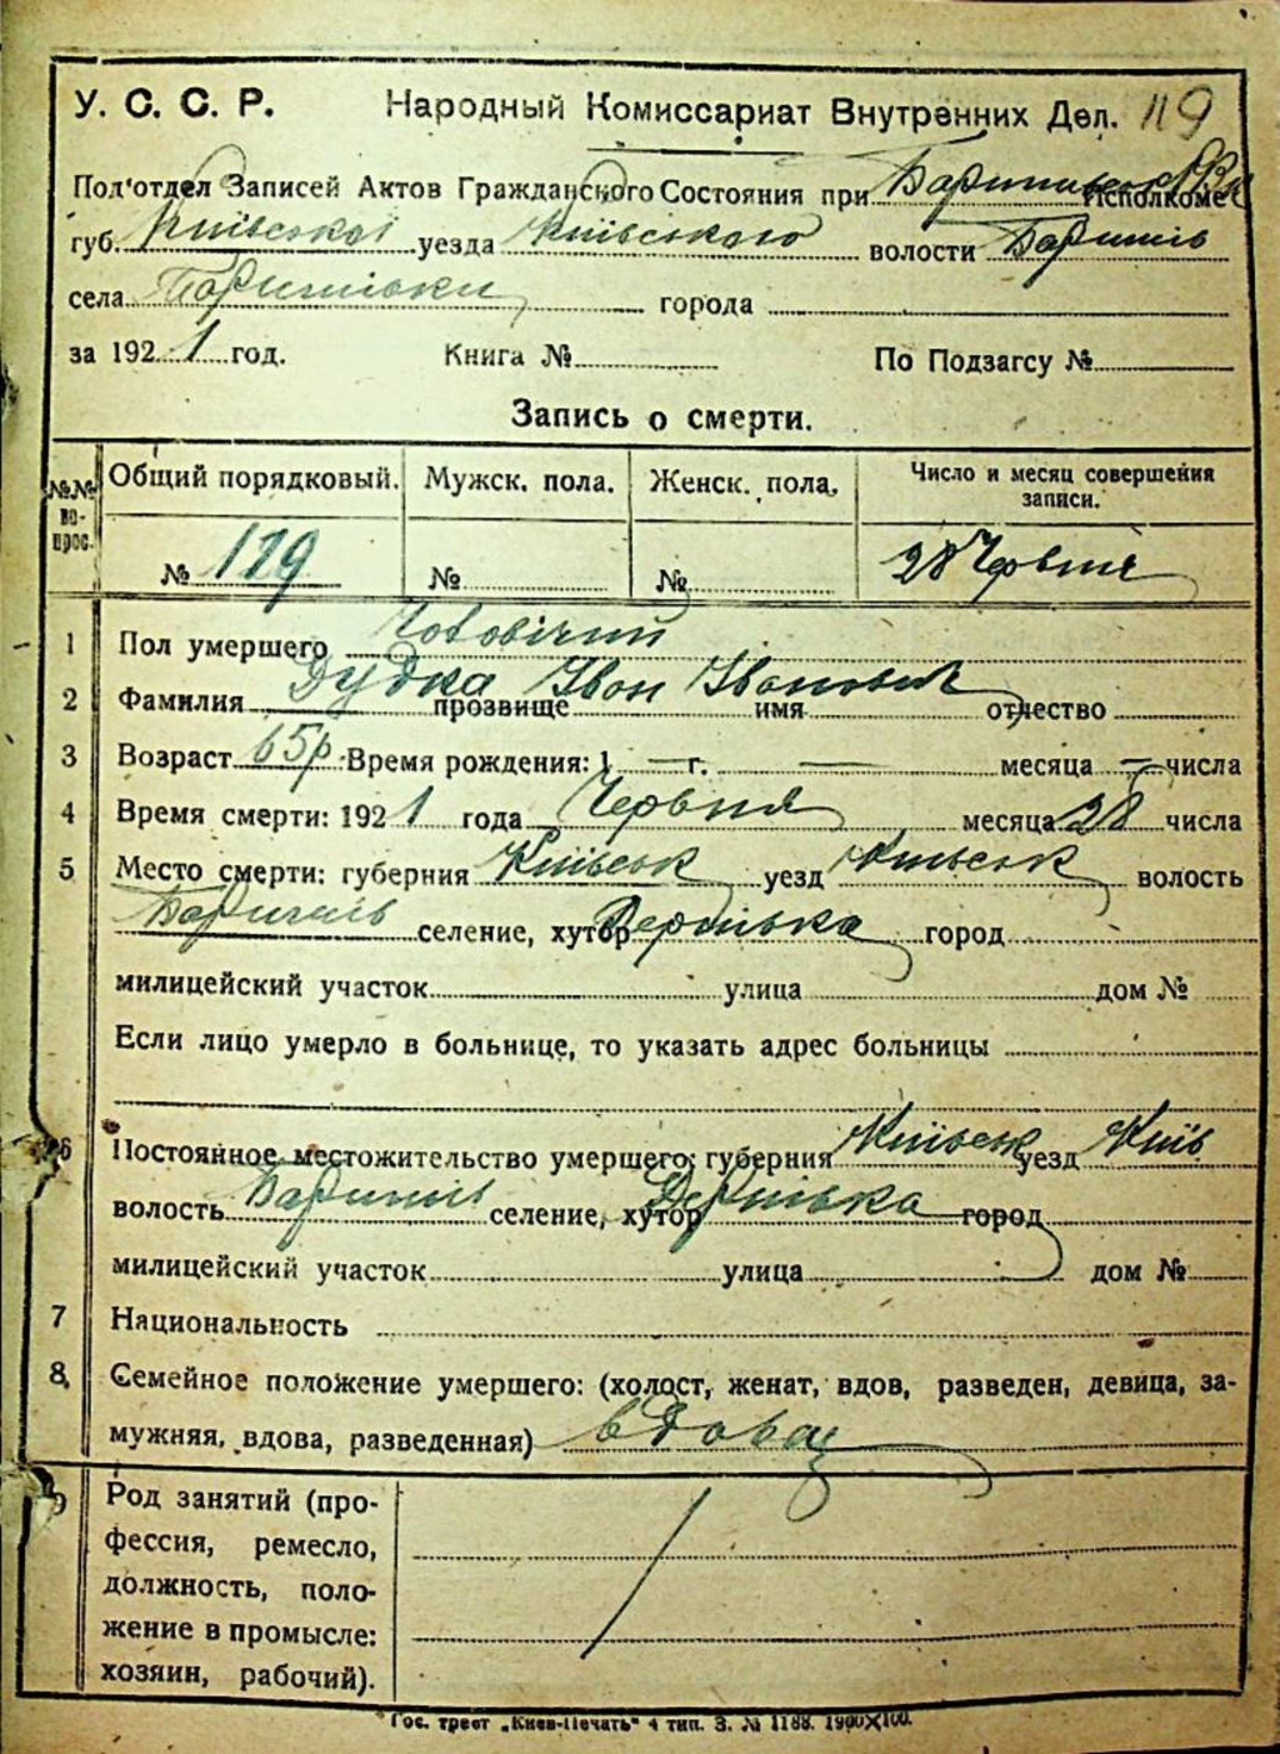 У. С. С. Р. Народный Комиссариат Внутренних Дел. 119
Под'отдел Записей Актов Гражданского Состояния при Исполкоме
губ. Київської уезда Київського волости Баришів
села Баришівки города
за 1921 год. Книга № По Подзагсу №
Запись о смерти.
№№ во-прос. Общий порядковый. Мужск. пола. Женск. пола. Число и месяц совершения записи.
№ 119 № № 28 Червня
1 Пол умершего Чоловічий
2 Фамилия Дудка прозвище Іван имя Іванович отчество
3 Возраст 65 р. Время рождения: 1 — г. — месяца — числа
4 Время смерти: 1921 года Червня месяца 28 числа
5 Место смерти: губерния Київськ уезд Київськ волость
Баришів селение, хутор город
милицейский участок улица дом №
Если лицо умерло в больнице, то указать адрес больницы
6 Постоянное местожительство умершего: губерния Київськ уезд Київ
волость Баришів селение, хутор город
милицейский участок улица дом №
7 Национальность
8. Семейное положение умершего: (холост, женат, вдов, разведен, девица, за-
мужняя, вдова, разведенная) вдовец
9 Род занятий (про-
фессия, ремесло,
должность, поло-
жение в промысле:
хозяин, рабочий).
Гос. трест „Киев-Печать“ 4 тип. З. № 1188. 1900×100.